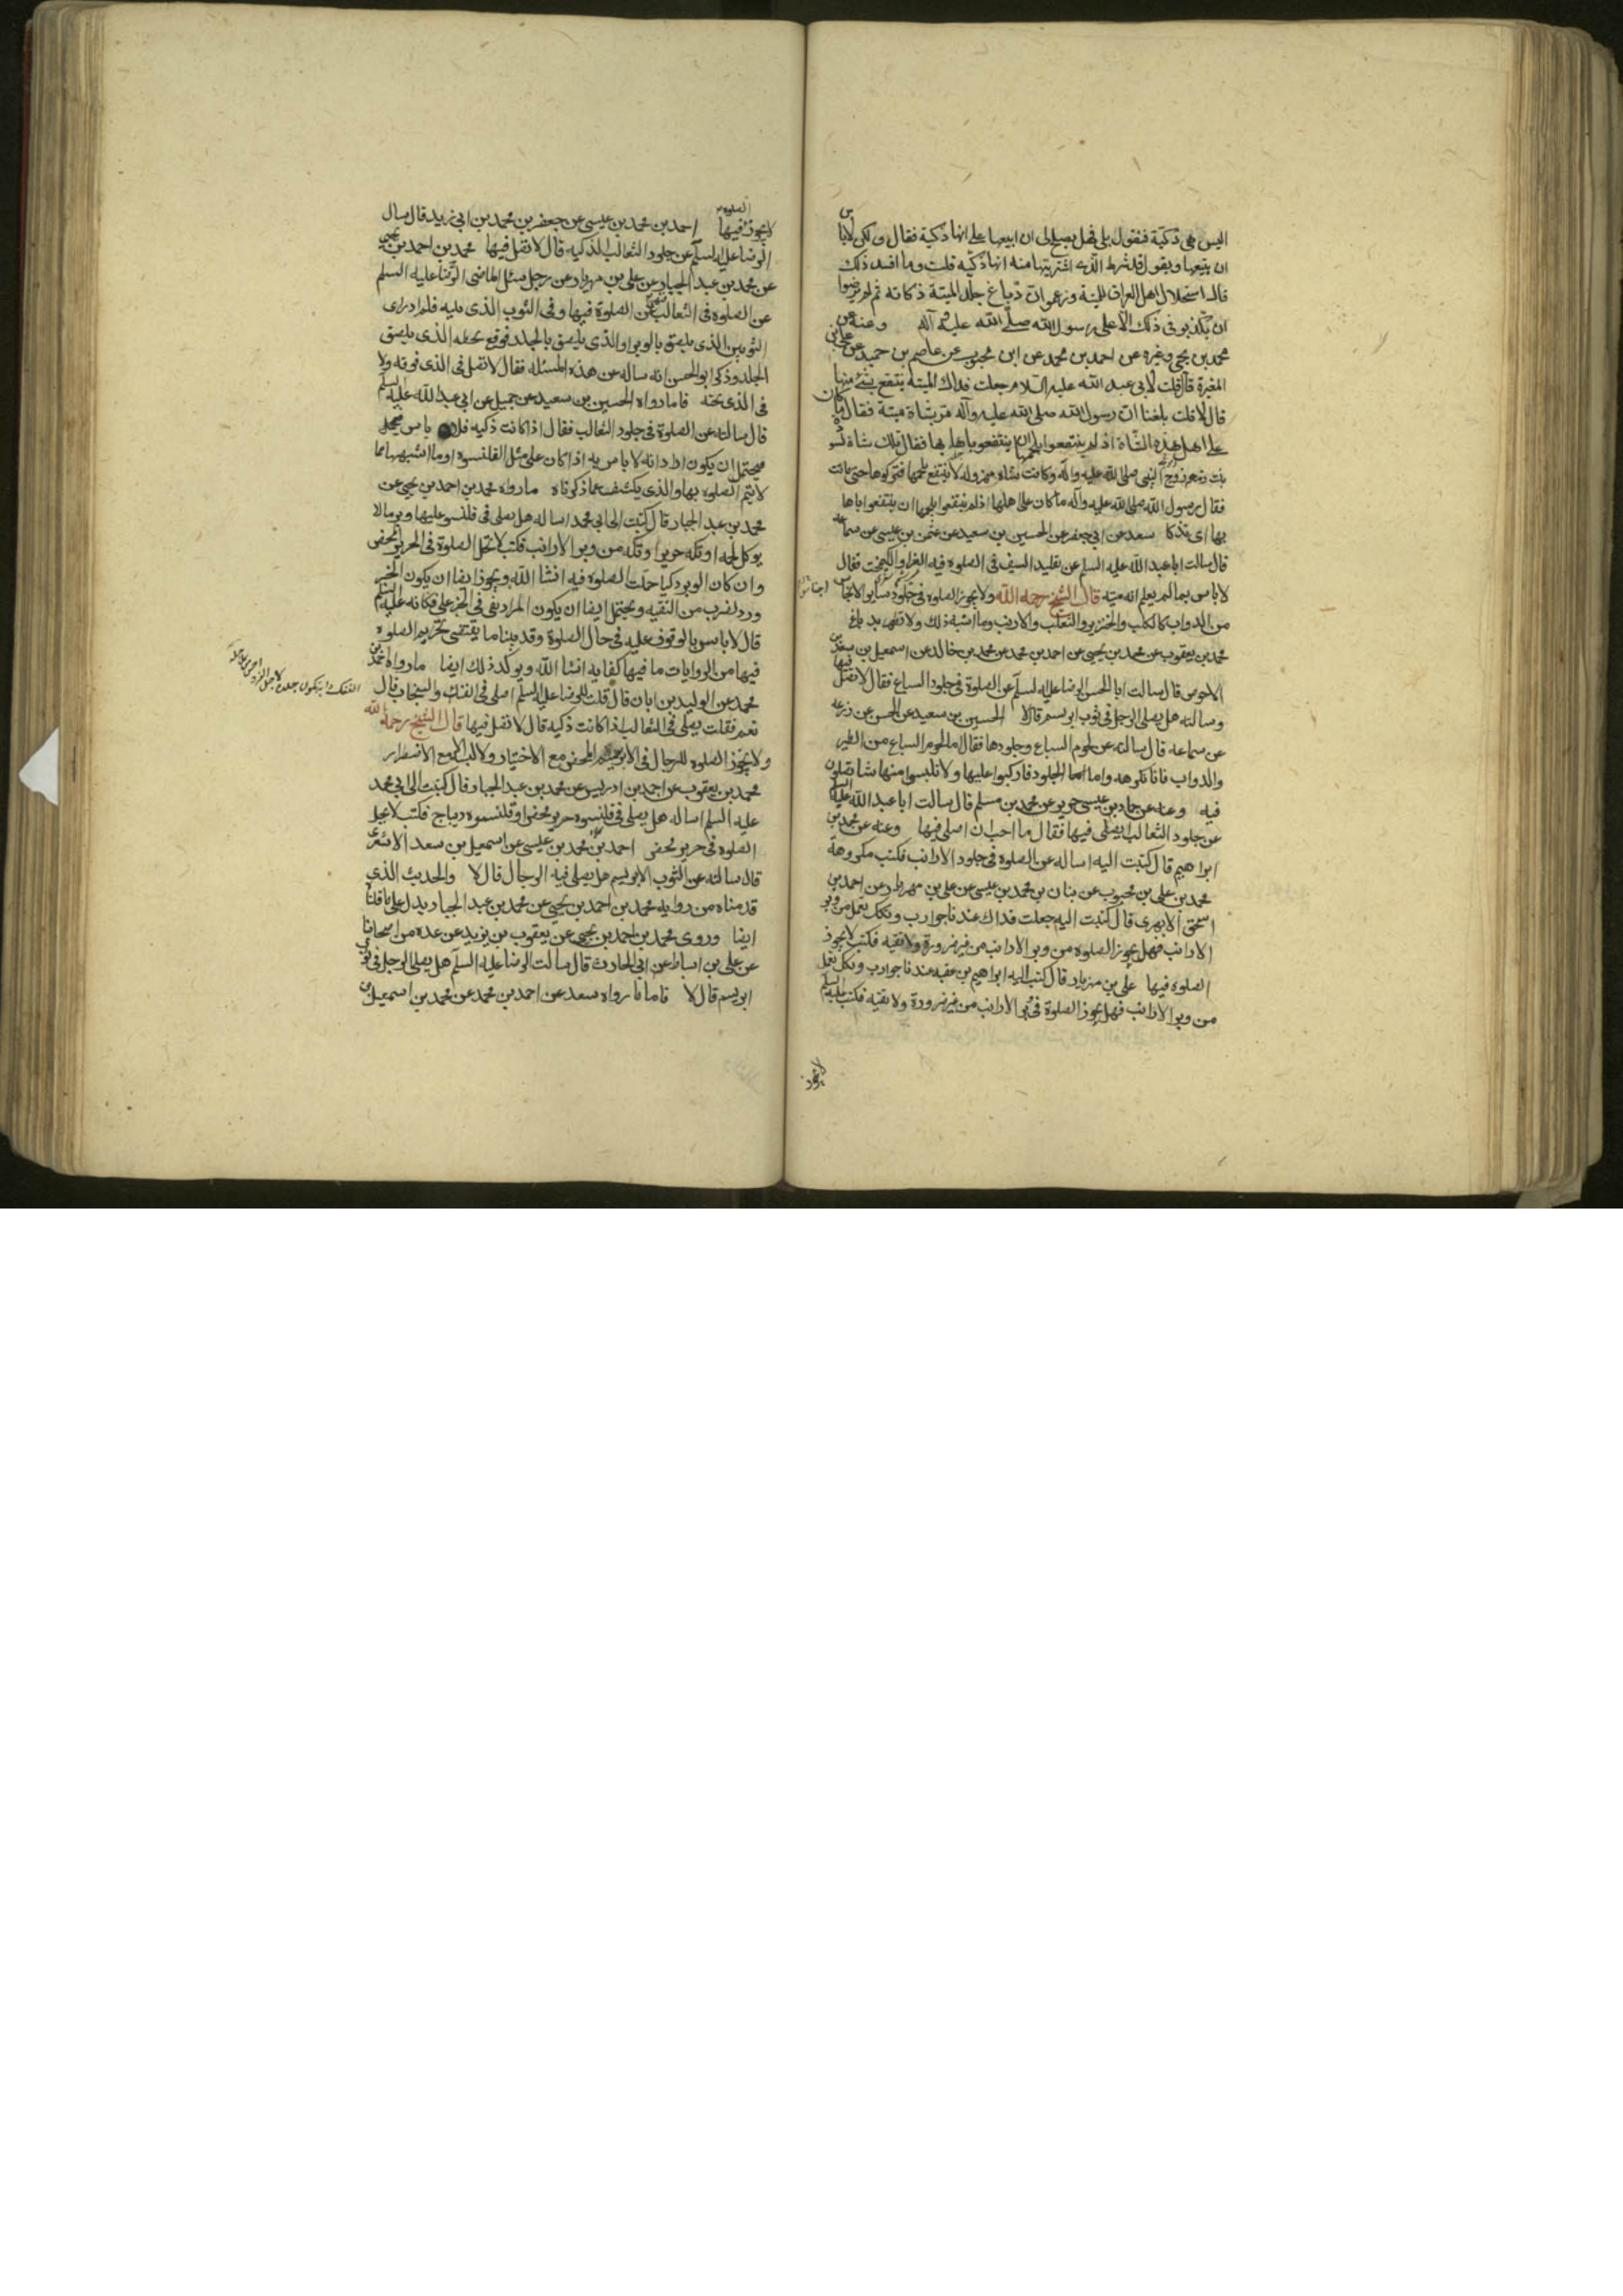 اليس هى ذكية فنقول بلى فهل يصلح لى ان ابيعها على انها ذكية فقال ولكن لا باس
ان يبيعها ويقول قد شرط الذى اشتريتها منه انها ذكيه قلت وما افسد ذلك
قال استحلال اهل العراق للميتة وزعموا ان دباغ جلد الميتة ذكاته ثم لم يرضوا
ان يكذبوا فى ذلك الا على رسول الله صلى الله عليه وآله وعنه عن
محمد بن يحيى وغيره عن احمد بن محمد عن ابن محبوب عن عاصم بن حميد عن على بن
المغيرة قال قلت لابى عبد الله عليه السلام جعلت فداك الميتة ينتفع بشئ منها
قال لا قلت بلغنا ان رسول الله صلى الله عليه وآله مر بشاة ميتة فقال ما كان
على اهل هذه الشاة اذ لم ينتفعوا بلحمها ان ينتفعوا باهابها فقال تلك شاة لسودة
بنت زمعه زوج النبى صلى الله عليه وآله وكانت شاة مهزوله لا ينتفع بلحمها فتركوها حتى ماتت
فقال رسول الله صلى الله عليه وآله ما كان على اهلها اذ لم ينتفعوا بلحمها ان ينتفعوا باهابها
بها اى تذكا سعد عن ابى جعفر عن الحسين بن سعيد عن عثمن بن عيسى عن سماعه
قال سالت ابا عبد الله عليه السلم عن تقليد السيف فى الصلوه فيه الغرا والكيمخت فقال
لا باس بما لم يعلم انه ميته قال الشيخ رحمه الله ولا يجوز الصلوه فى جلود ساير الانجاس
من الدواب كالكلب والخنزير والثعلب والارنب وما اشبه ذلك ولا تطهر بدباغ
محمد بن يعقوب عن محمد بن يحيى عن احمد بن محمد عن محمد بن خالد عن اسمعيل بن سعد بن
الاحوص قال سالت ابا الحسن الرضا عليه السلم عن الصلوة فى جلود السباع فقال لا تصل فيها
وسالته هل يصلى الرجل فى ثوب ابريسم قال لا الحسين بن سعيد عن الحسن عن زرعه
عن سماعه قال سالته عن لحوم السباع وجلودها فقال اما لحوم السباع من الطير
والدواب فانا نكرهه واما الجلود فاركبوا عليها ولا تلبسوا منها شيئا تصلون
فيه وعنه عن حماد بن عيسى حريز عن محمد بن مسلم قال سالت ابا عبد الله عليه السلم
عن جلود الثعالب ايصلى فيها فقال ما احب ان اصلى فيها وعنه عن محمد بن
ابراهيم قال كتبت اليه اساله عن الصلوه فى جلود الارانب فكتب مكروهة
محمد بن على بن محبوب عن بنان بن محمد بن عيسى عن على بن مهزيار عن احمد بن
اسحق الابهرى قال كتبت اليه جعلت فداك عندنا جوارب وتكك تعمل من وبر
الارانب فهل يجوز الصلوه من وبر الارانب من غير ضرورة ولا تقيه فكتب لا يجوز
الصلوه فيها على بن مهزيار قال كتب اليه ابراهيم بن عقبه عندنا جوارب وتكك تعمل
من وبر الارانب فهل يجوز الصلوة فى وبر الارانب من غير ضرورة ولا تقيه فكتب عليه السلم
لا يجوز
لا يجوز الصلوه فيها احمد بن محمد بن عيسى عن جعفر بن محمد بن ابى زيد قال سال
الرضا عليه السلم عن جلود الثعالب الذكيه قال لا تصل فيها محمد بن احمد بن يحيى
عن محمد بن عبد الجبار عن على بن مهزيار عن رجل سئل الماضى الرضا عليه السلم
عن الصلوه فى الثعالب فنهى عن الصلوة فيها وفى الثوب الذى يليه فلم ادر اى
الثوبين الذى يلصق بالوبر او الذى يلصق بالجلد فوقع بخطه الذى يلصق
الجلد وذكر ابو الحسن انه ساله عن هذه المسئله فقال لا تصل فى الذى فوقه ولا
فى الذى تحته فاما رواه الحسين بن سعيد عن جميل عن ابى عبد الله عليه السلم
قال سالته عن الصلوة فى جلود الثعالب فقال اذا كانت ذكيه فلا باس
فيحتمل ان يكون اراد انه لا باس به اذا كان على مثل القلنسوه او ما اشبهها مما
لا يتم الصلوه بها والذى يكشف عما ذكرناه ما رواه محمد بن احمد بن يحيى عن
محمد بن عبد الجبار قال كتبت الى ابى محمد اساله هل يصلى فى قلنسو عليها وبر ما لا
يوكل لحمه او تكه حرير او تكه من وبر الارانب فكتب لا تحل الصلوة فى الحرير المحض
وان كان الوبر ذكيا حلت الصلوه فيه انشا الله ويجوز ايضا ان يكون الخبر
ورد لضرب من التقيه ويحتمل ايضا ان يكون المراد بفى فى الخبر على فكانه عليه السلم
قال لا باس بالوقوف عليه فى حال الصلوة وقد بينا ما يقتضى تحريم الصلوه
فيها من الروايات ما فيها كفايه انشا الله ويوكد ذلك ايضا ما رواه احمد بن
محمد عن الوليد بن ابان قال قلت للرضا عليه السلم اصلى فى الفنك والسنجاب قال
نعم فقلت يصلى فى الثعالب اذا كانت ذكيه قال لا تصل فيها قال الشيخ رحمه الله
ولا يجوز الصلوه للرجال فى الابريسم المحض مع الاختيار ولا لبسه الا مع الاضطرار
محمد بن يعقوب عن احمد بن ادريس عن محمد بن عبد الجبار قال كتبت الى ابى محمد
عليه السلم اساله هل يصلى فى قلنسوه حرير محض او قلنسوه ديباج فكتب لا تحل
الصلوه فى حرير محض احمد بن محمد بن عيسى عن اسمعيل بن سعد الاشعرى
قال سالته عن الثوب الابريسم هل يصلى فيه الرجال قال لا والحديث الذى
قدمناه من روايه محمد بن احمد بن يحيى عن محمد بن عبد الجبار يدل على ما قلنا
ايضا وروى محمد بن احمد بن يحيى عن يعقوب بن يزيد عن عده من اصحابنا
عن على بن اسباط عن ابى الحارث قال سالت الرضا عليه السلم هل يصلى الرجل فى ثوب
ابريسم قال لا فاما ما رواه سعد عن احمد بن محمد عن محمد بن اسمعيل بن